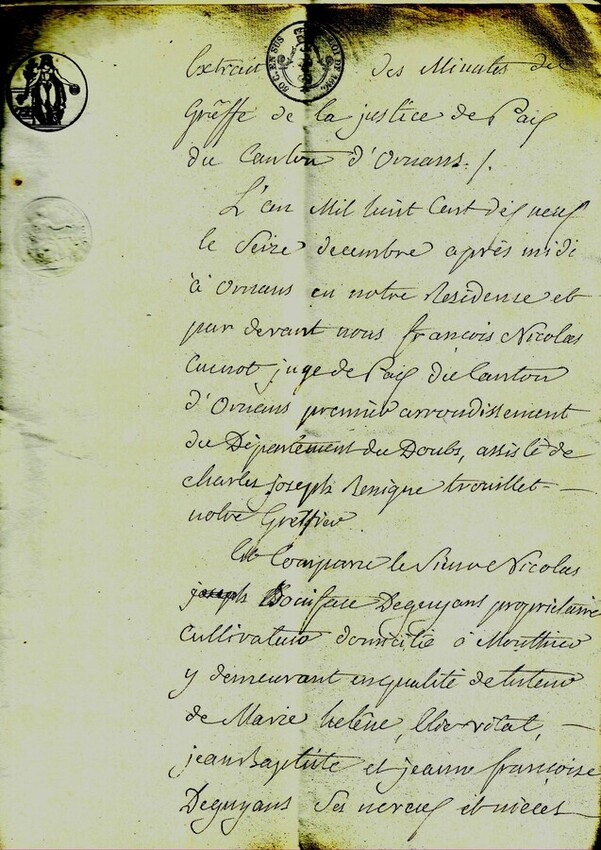 Extrait des Minutes du
Greffe de la justice de Paix
du Canton d'Ornans ./.
L'an Mil huit Cent dix neuf
le Seize decembre après midi
à Ornans en notre Residense et
par devant nous françois Nicolas
Cuenot juge de Paix du Canton
d'Ornans premier arrondissement
du Département du Doubs, assisté de
charles joseph Benigne trouillet —
notre Greffier
Est Comparu le Sieur Nicolas
joseph Boniface Deguyans propriétaire
Cultivateur domicilié à Mouthier
y demeurant en qualité de tuteur
de Marie helène, —
jean Baptiste et jeanne françoise
Deguyans Ses neveux et nieces —